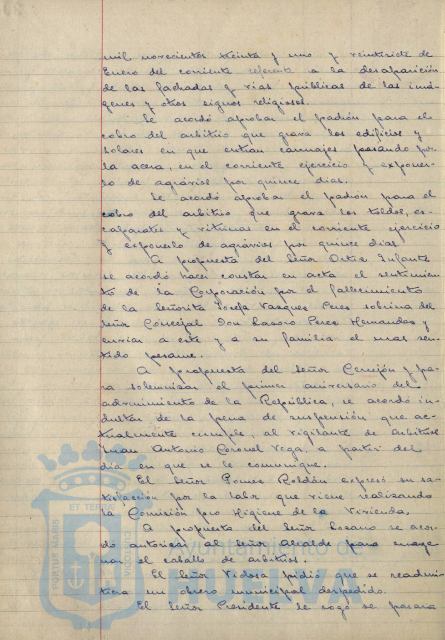 mil novecientos treinta y uno y veintisiete de
Enero del corriente referente a la desaparición
de las fachadas y vias públicas de las imá-
genes y otros signos religiosos.
Se acordó aprobar el padrón para el
cobro del arbitrio que grava los edificios y
solares en que entran carruajes pasando por
la acera, en el corriente ejercicio y exponer-
lo de agravios por quince dias.
Se acordó aprobar el padrón para el
cobro del arbitrio que grava los toldos, es-
caparates y vitrinas en el corriente ejercicio
y exponerlo de agravios por quince dias
A propuesta del Señor Ortiz Infante
se acordó hacer constar en acta el sentimien-
to de la Corporación por el fallecimiento
de la Señorita Josefa Vazquez Perez sobrina del
Señor Concejal Don Perez Hernandez y
enviar a este y a su familia el mas sen-
tido pesame.
A propuesta del Señor y pa-
ra solemnizar el primer aniversario del
advenimiento de la República, se acordó in-
dultar de la pena de suspensión que ac-
tualmente cumple, al vigilante de Arbitrios
Juan Antonio Coronel Vega, a partir del
dia en que se le comunique.
El Señor Ponce Roldán expresó su sa-
tisfacción por la labor que viene realizando
la Comisión pro Higiene de la Vivienda.
A propuesta del Señor Lozano se acor-
dó autorizar al Señor Alcalde para enage-
nar el caballo de arbitrios.
El Señor Vidosa pidió que se readmi-
tiera un obrero municipal despedido.
El Señor Presidente le rogó se pasara
PORTUS MARIS
ET TERRAE
CUSTODIA
Ayuntamiento de
HUELVA